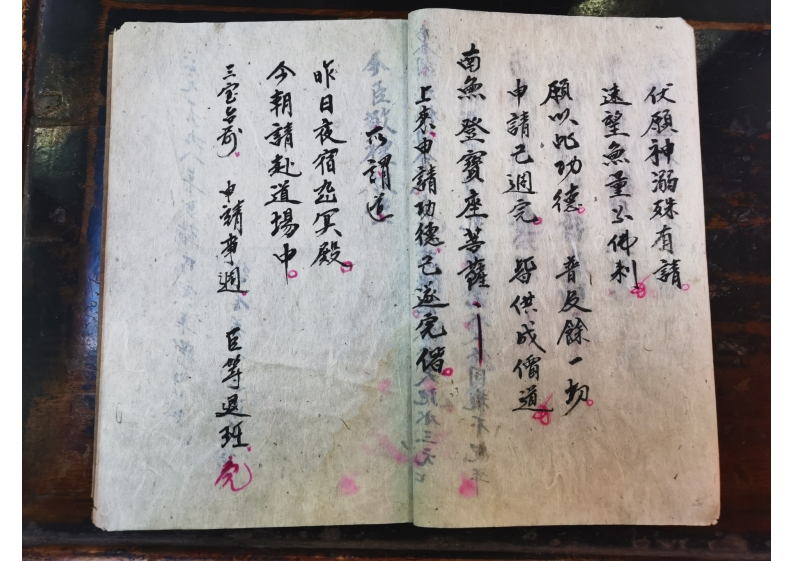 伏願神溺殊有請
遠望無量公佛刹
願以此功德 普及餘一切
申請已週完 皆供成價道
南無登寶座菩薩
上來申請功德已遂完偹
所謂道
昨日夜宿幽冥殿
今朝請赴道場中
三宝台前 申請事週 臣等退班 完